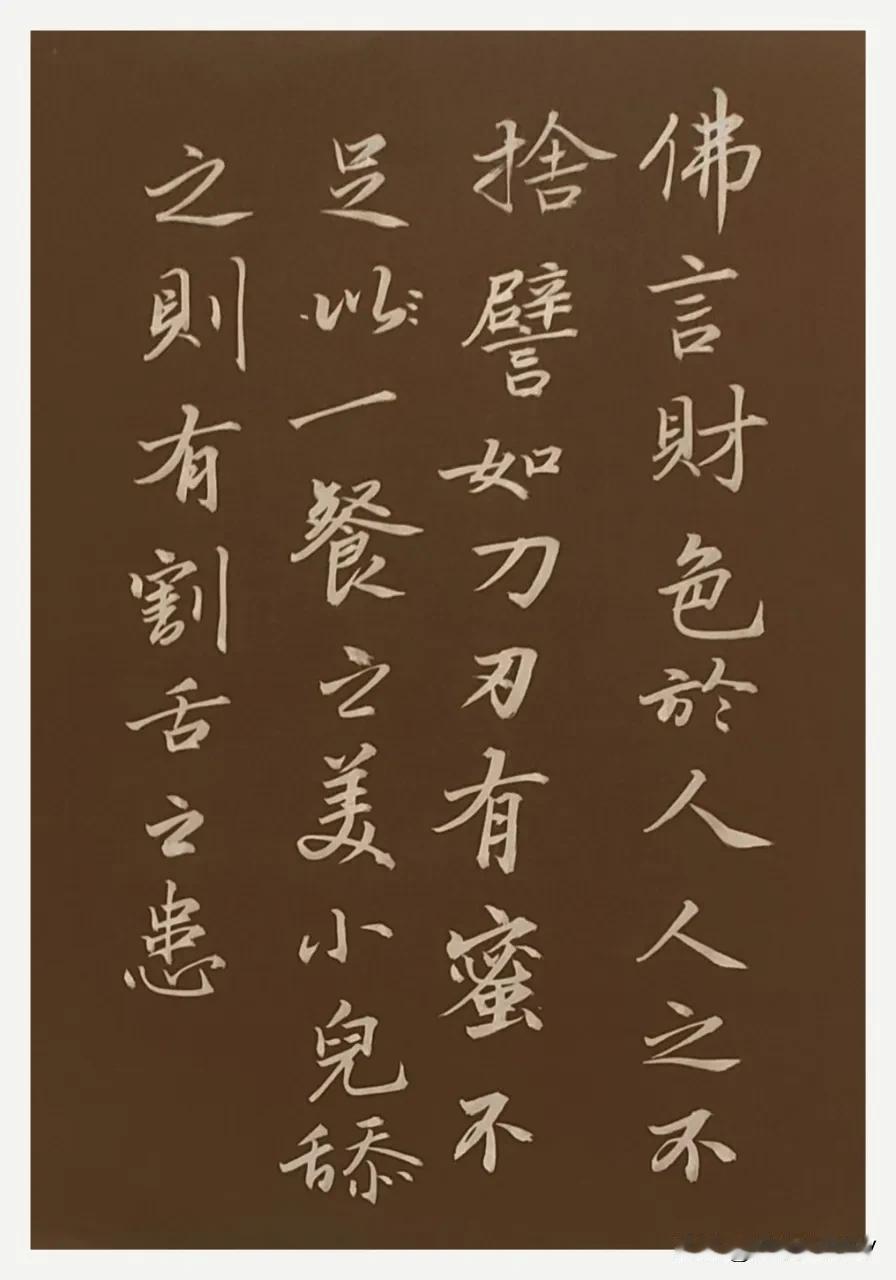 佛言財色於人人之不
捨譬如刀刃有蜜不
足以一餐之美小兒舔
之則有割舌之患